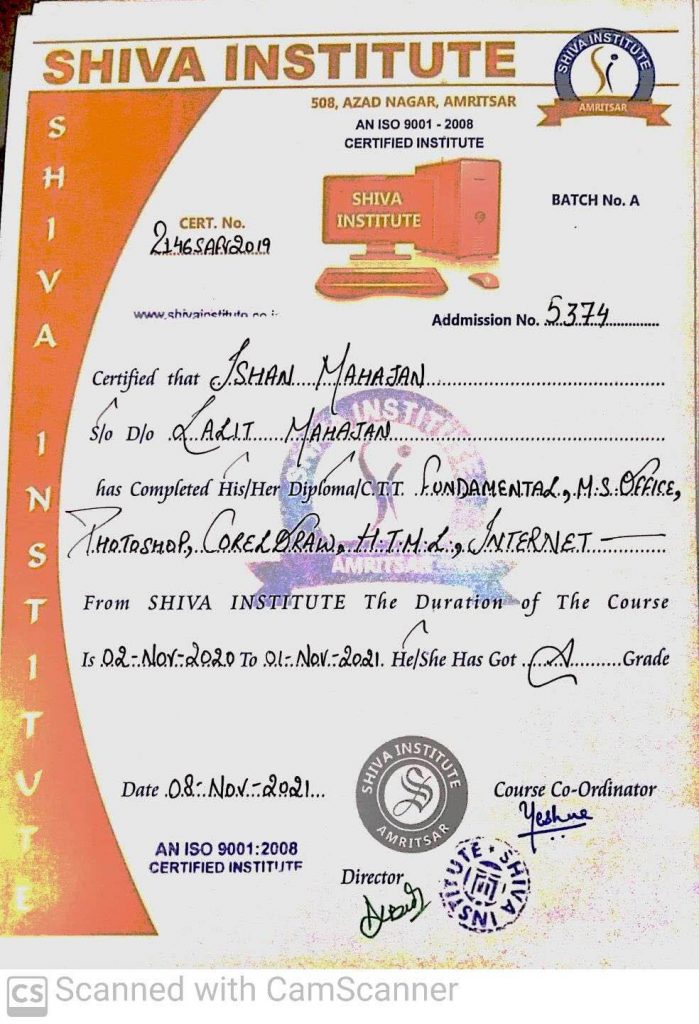 SHIVA INSTITUTE
SHIVA INSTITUTE
AMRITSAR
508, AZAD NAGAR, AMRITSAR
AN ISO 9001 - 2008
CERTIFIED INSTITUTE
SHIVA INSTITUTE
SHIVA
INSTITUTE
BATCH No. A
CERT. No.
www.shivainstitute.co.i
Addmission No. 5374
Certified that ISHAN MAHAJAN
S/o D/o LALIT MAHAJAN
has Completed His/Her Diploma/C.T.T. FUNDAMENTAL, M.S. OFFICE,
PHOTOSHOP, CORELDRAW, H.T.M.L., INTERNET
INSTITUTE
AMRITSAR
From SHIVA INSTITUTE The Duration of The Course
Is 02-NOV-2020 To 01-NOV-2021. He/She Has Got A Grade
Date 08-NOV-2021
SHIVA INSTITUTE
S
AMRITSAR
Course Co-Ordinator
AN ISO 9001:2008
CERTIFIED INSTITUTE
Director
SHIVA INSTITUTE
CS Scanned with CamScanner